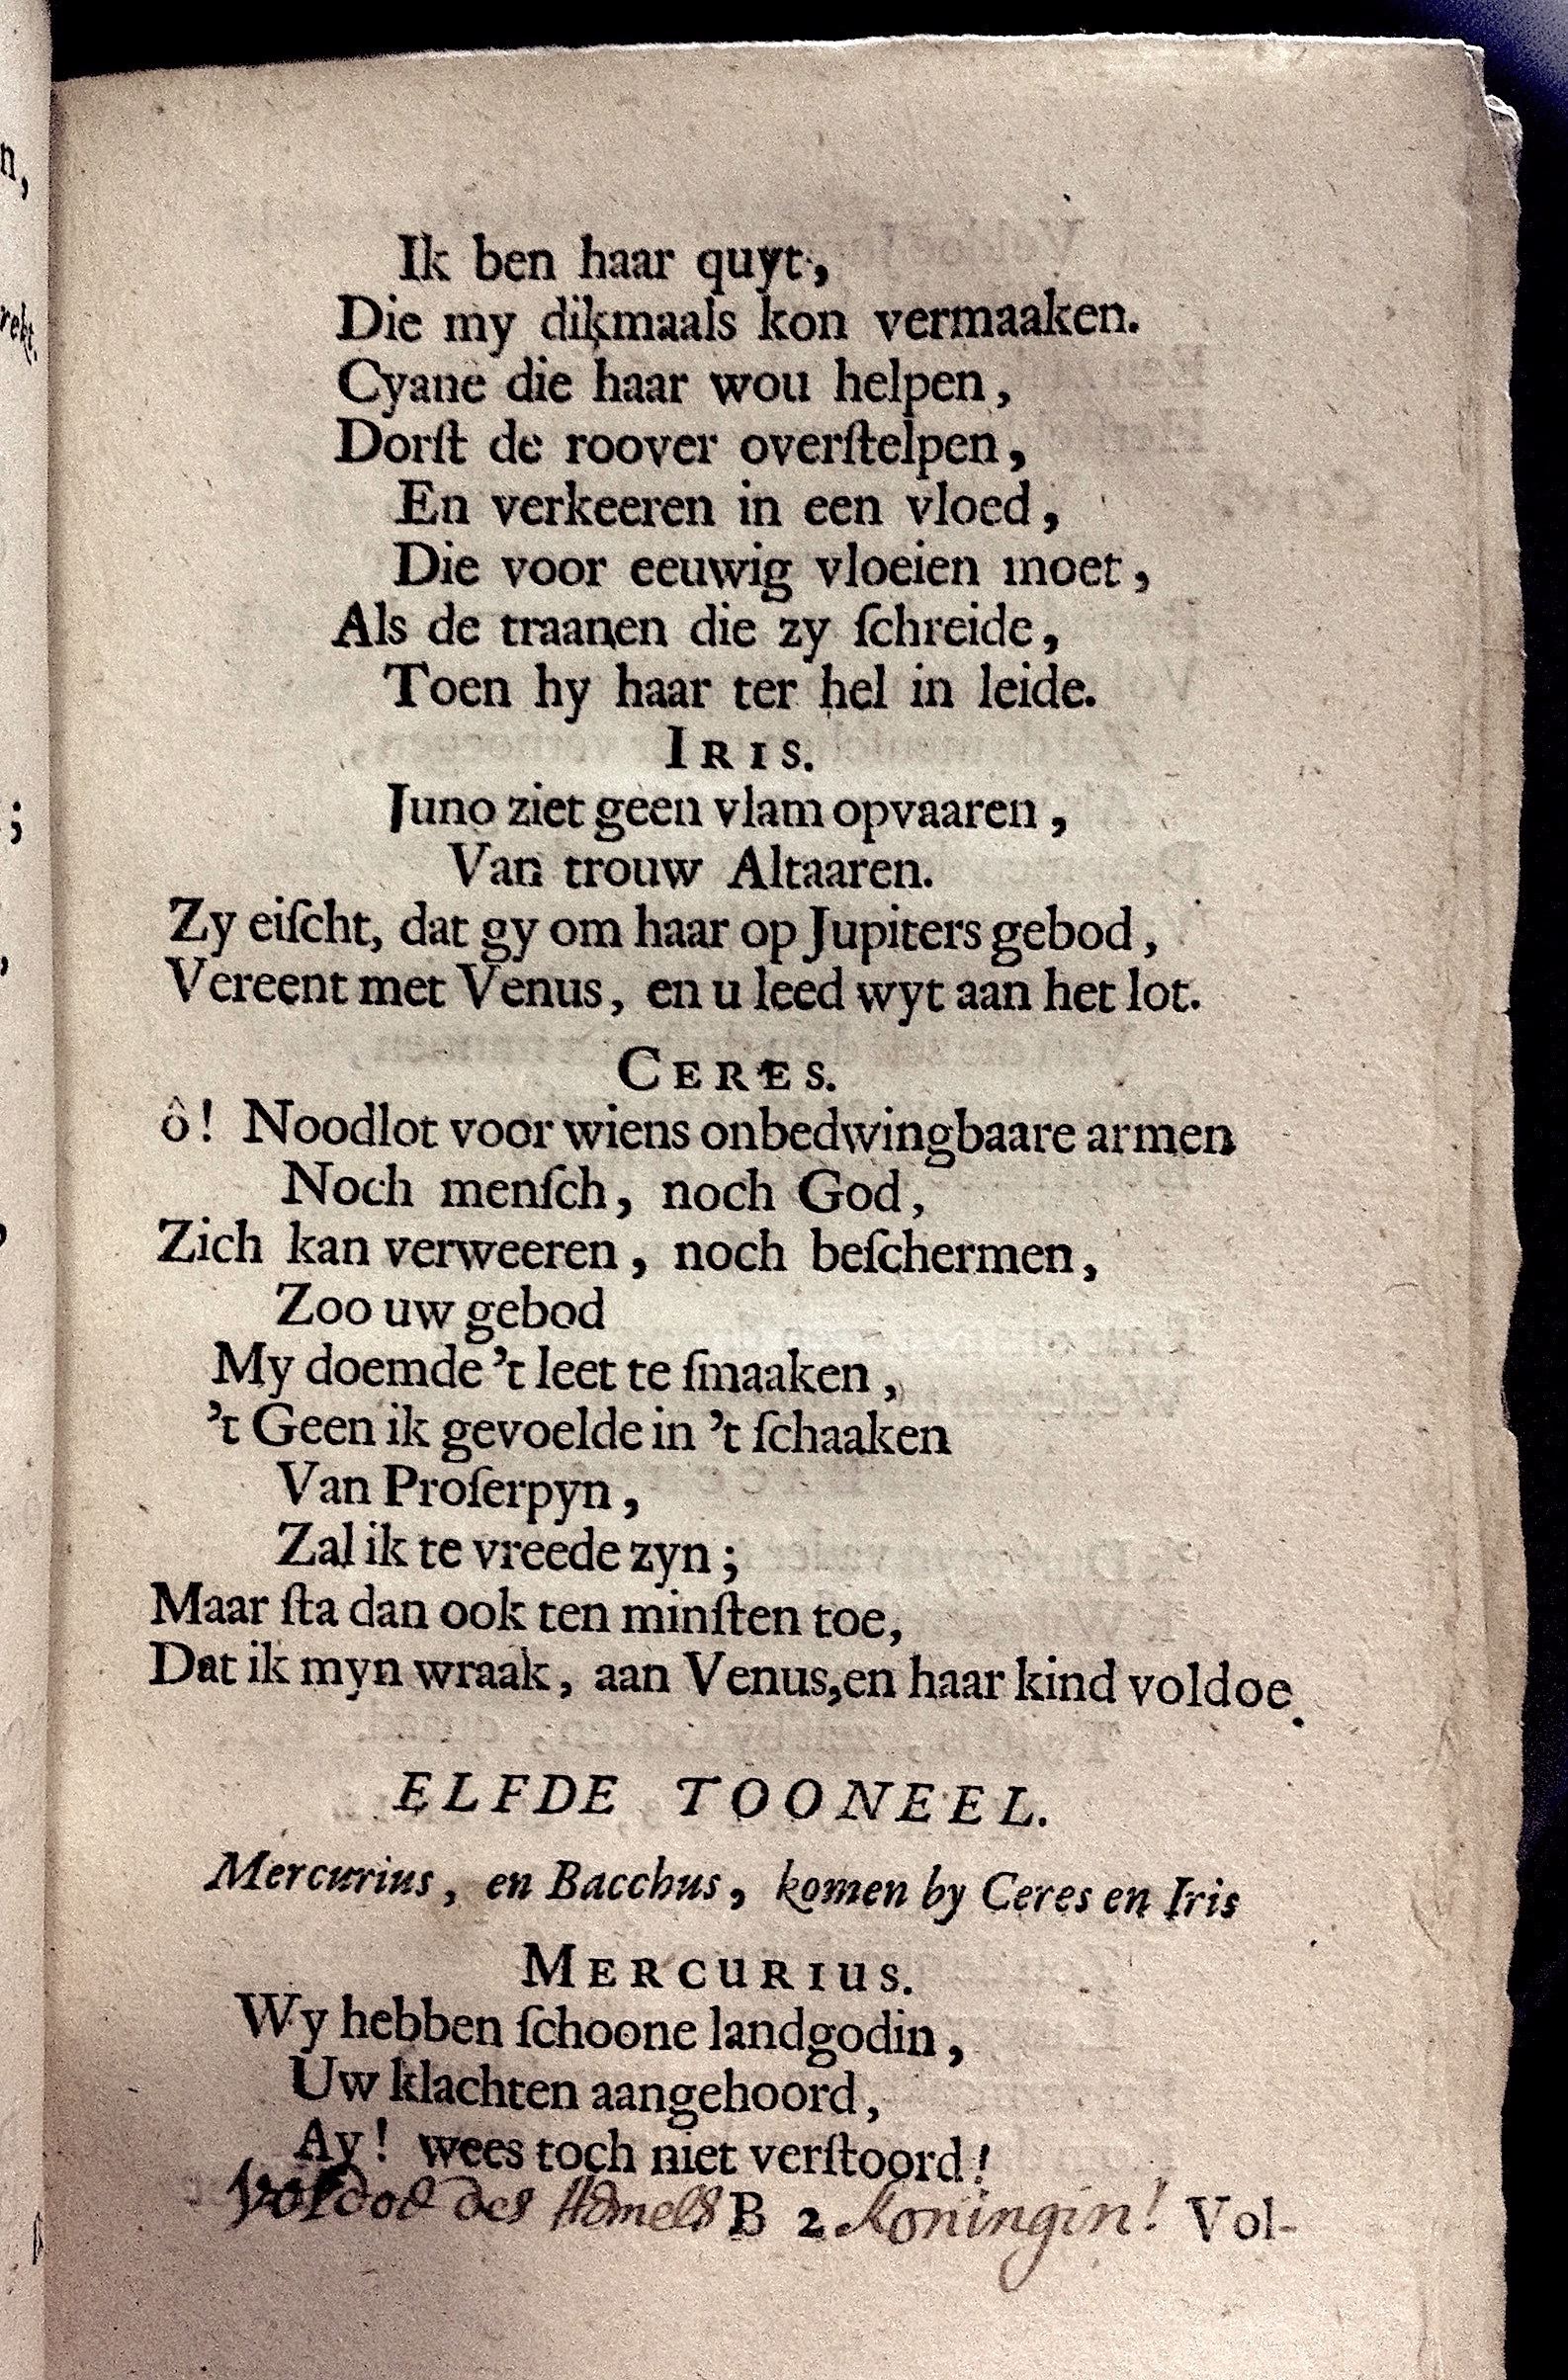 Ik ben haar quyt,
Die my dikmaals kon vermaaken.
Cyane die haar wou helpen,
Dorſt de roover overſtelpen,
En verkeeren in een vloed,
Die voor eeuwig vloeien moet,
Als de traanen die zy ſchreide,
Toen hy haar ter hel in leide.
IRIS.
Juno ziet geen vlam opvaaren,
Van trouw Altaaren.
Zy eiſcht, dat gy om haar op Jupiters gebod,
Vereent met Venus, en u leed wyt aan het lot.
CERES.
ô! Noodlot voor wiens onbedwingbaare armen
Noch menſch, noch God,
Zich kan verweeren, noch beſchermen,
Zoo uw gebod
My doemde 't leet te ſmaaken,
't Geen ik gevoelde in 't ſchaaken
Van Proſerpyn,
Zal ik te vreede zyn;
Maar ſta dan ook ten minſten toe,
Dat ik myn wraak, aan Venus, en haar kind voldoe.
ELFDE TOONEEL.
Mercurius, en Bacchus, komen by Ceres en Iris
MERCURIUS.
Wy hebben ſchoone landgodin,
Uw klachten aangehoord,
Ay! wees toch niet verſtoord!
Voldoe des Hemels Koningin!
B 2 Vol-